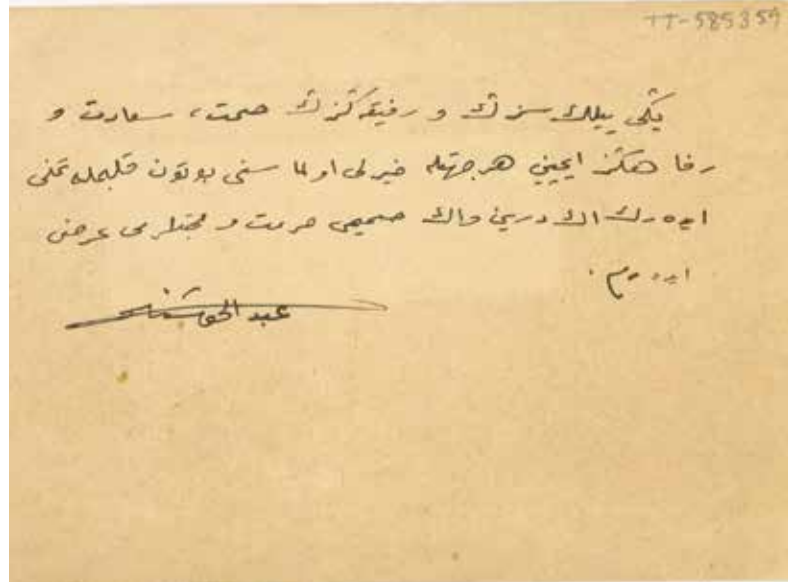 TT-585359
یڭی ییلڭ سزڭ و رفیقه‌ڭزڭ صحت، سعادت و
رفاهڭز ایچین هر جهتله خیرلی اولماسنی بوتون قلبمله تمنی
ایده‌رك اڭ درین و اڭ صمیمی حرمت و محبتلرمی عرض
ایده‌رم.
عبدالحق شناسی